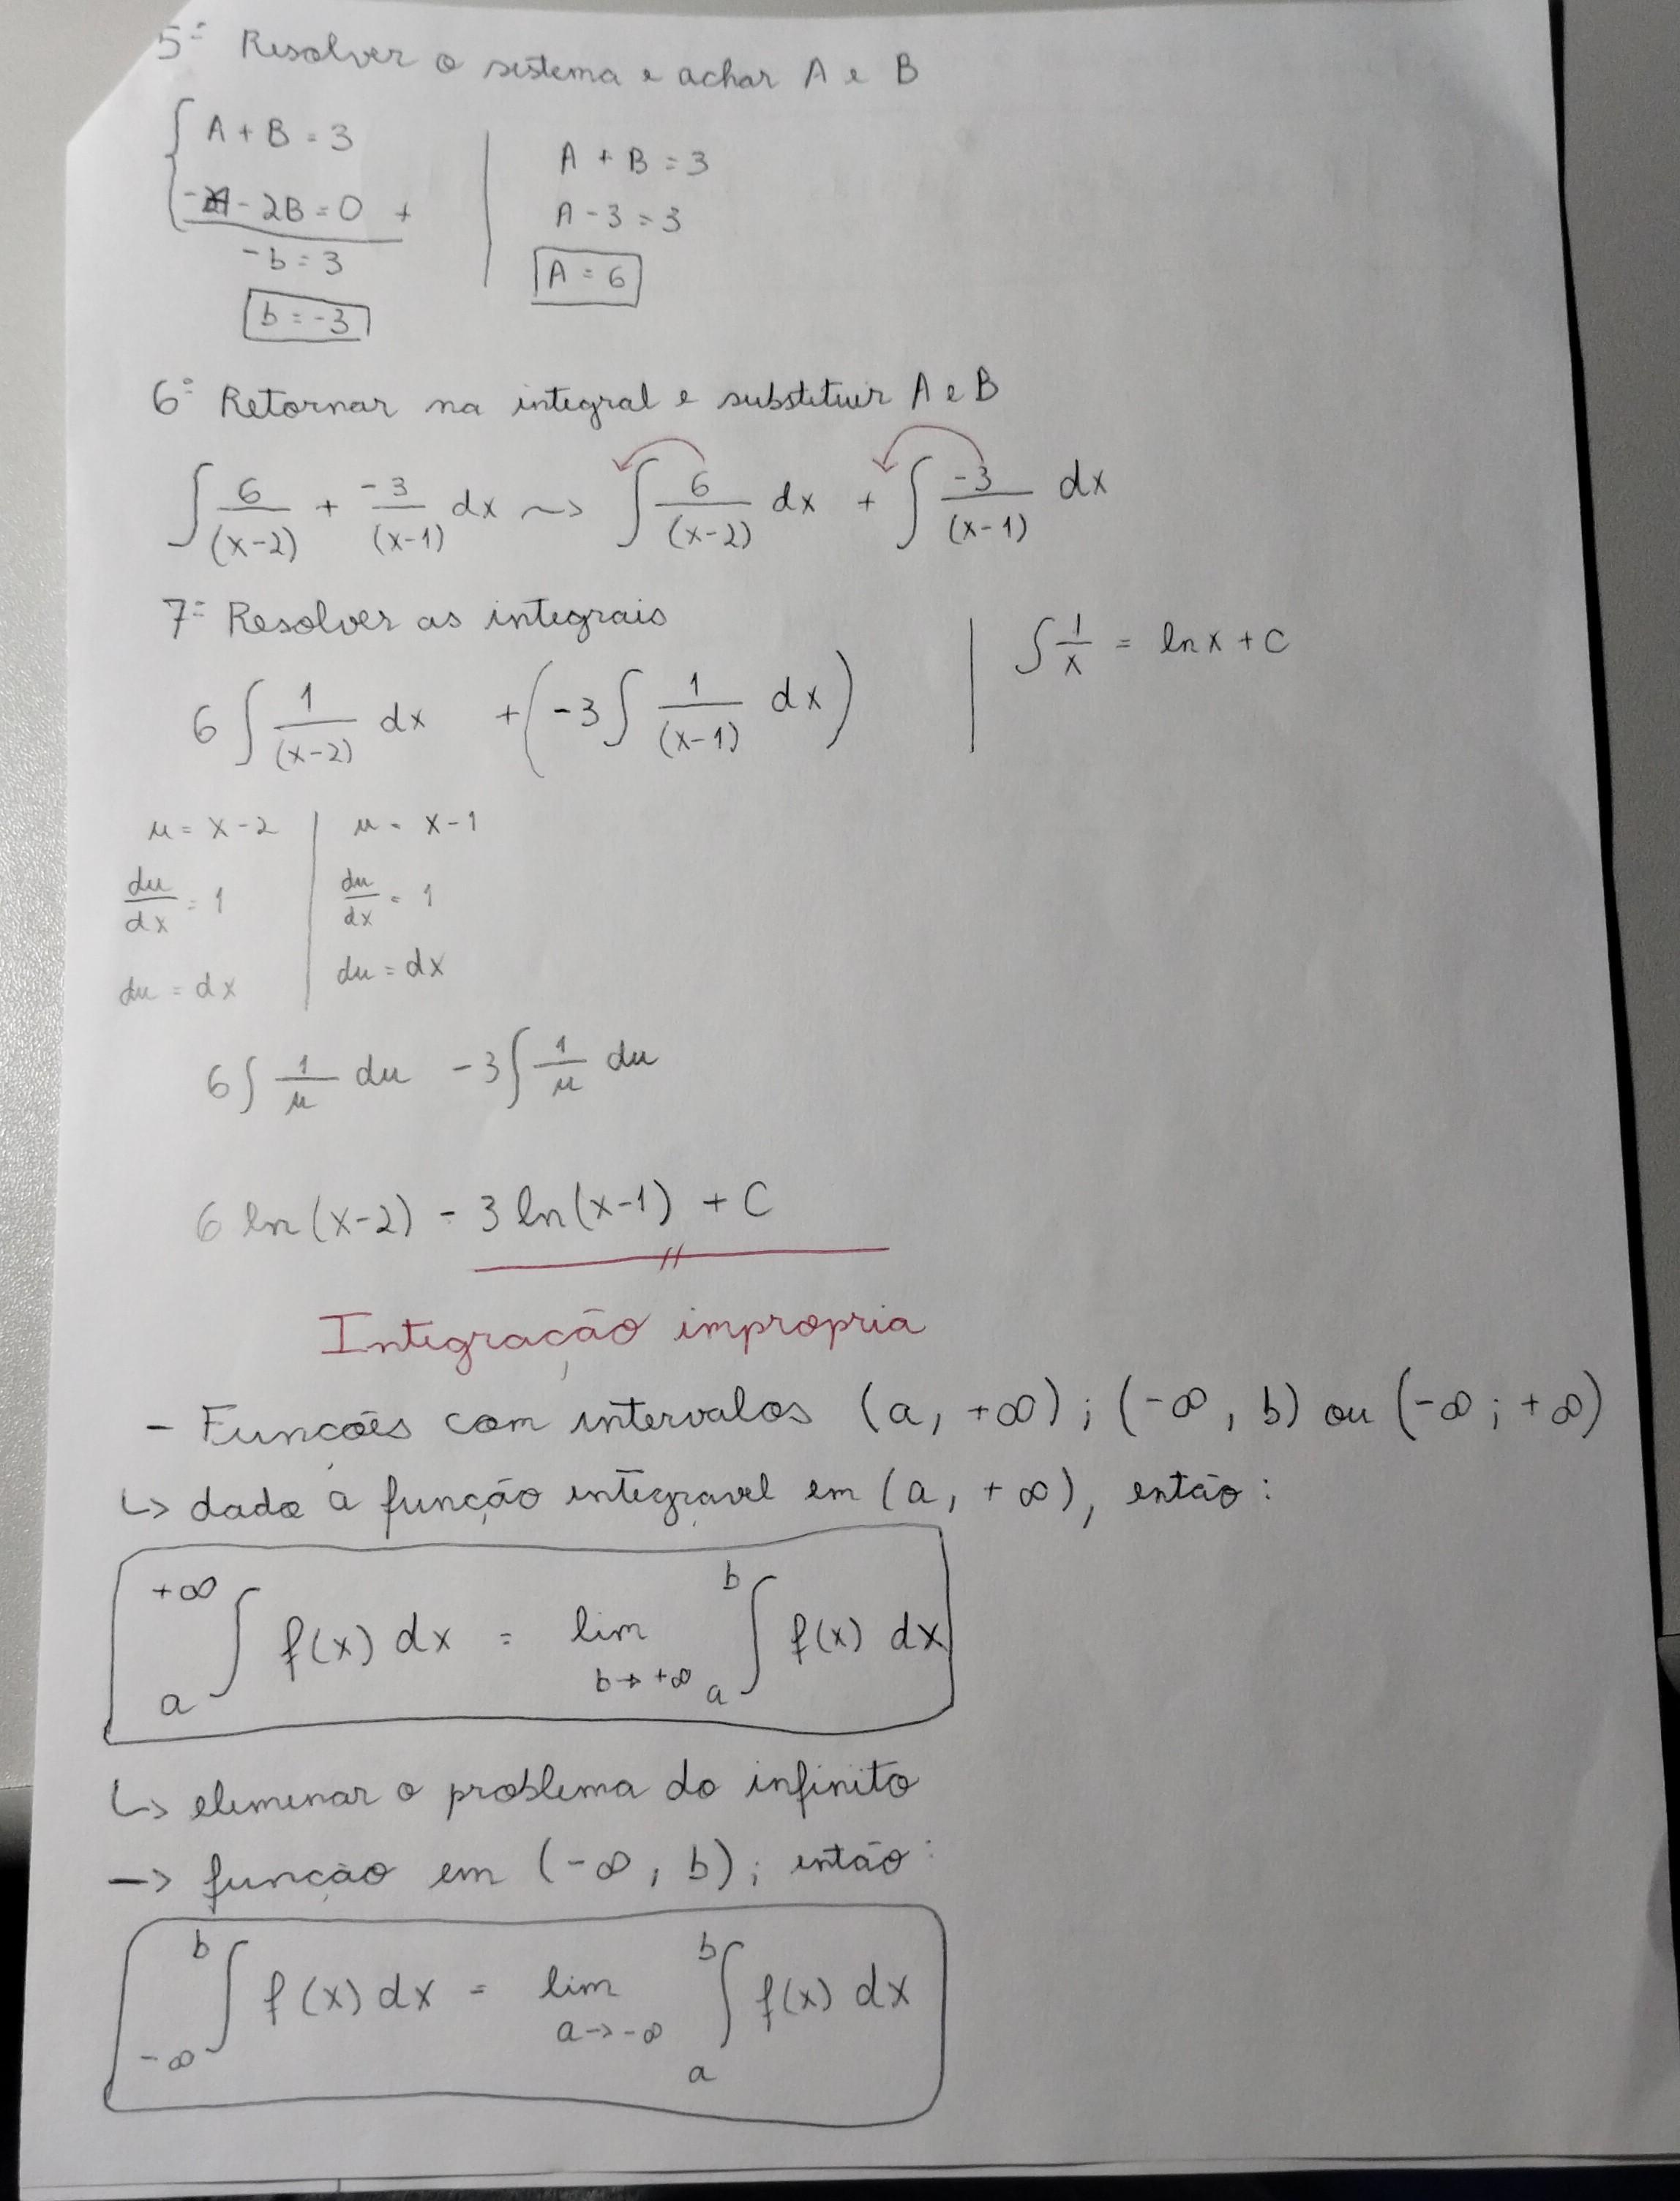 5º Resolver o sistema e achar A e B
A + B = 3
-A - 2B = 0 +
-b = 3
b = -3
A + B = 3
A - 3 = 3
A = 6
6º Retornar na integral e substituir A e B
∫ 6/(x-2) + -3/(x-1) dx ~> ∫ 6/(x-2) dx + ∫ -3/(x-1) dx
7º Resolver as integrais
∫ 1/x = ln x + C
6 ∫ 1/(x-2) dx + (-3 ∫ 1/(x-1) dx)
u = x-2
du/dx = 1
du = dx
u = x-1
du/dx = 1
du = dx
6 ∫ 1/u du -3 ∫ 1/u du
6 ln(x-2) - 3 ln(x-1) + C
Integração impropria
- Funções com intervalos (a, +∞); (-∞, b) ou (-∞; +∞)
↳ dada a função integravel em (a, +∞), então:
+∞ ∫ a f(x) dx = lim b→+∞ b ∫ a f(x) dx
↳ eliminar o problema do infinito
-> função em (-∞, b); então:
b ∫ -∞ f(x) dx = lim a→-∞ b ∫ a f(x) dx